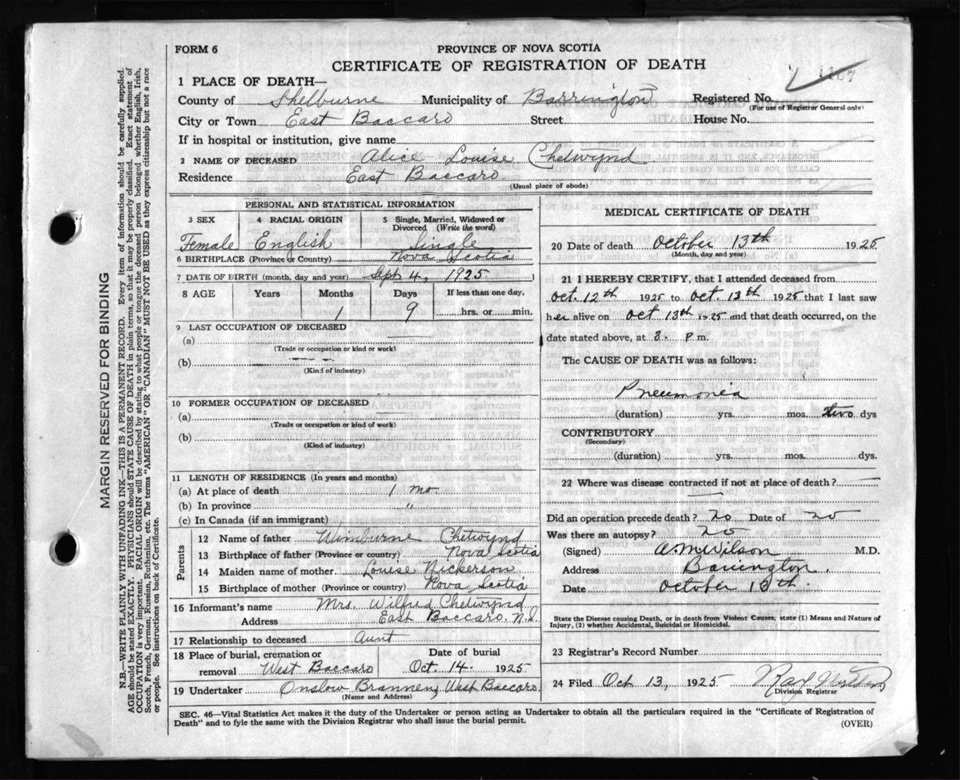 FORM 6
PROVINCE OF NOVA SCOTIA
CERTIFICATE OF REGISTRATION OF DEATH
1 PLACE OF DEATH—
County of Shelburne Municipality of Barrington Registered No.
(For use of Registrar General only)
City or Town East Baccaro Street House No.
If in hospital or institution, give name
2 NAME OF DECEASED Alice Louise Chetwynd
Residence East Baccaro
(Usual place of abode)
PERSONAL AND STATISTICAL INFORMATION
3 SEX 4 RACIAL ORIGIN 5 Single, Married, Widowed or Divorced (Write the word)
Female English Single
6 BIRTHPLACE (Province or Country) Nova Scotia
7 DATE OF BIRTH (month, day and year) Sept 4, 1925
8 AGE Years Months Days If less than one day,
1 9 hrs. or min.
9 LAST OCCUPATION OF DECEASED
(a)
(Trade or occupation or kind or work)
(b)
(Kind of industry)
10 FORMER OCCUPATION OF DECEASED
(a)
(Trade or occupation or kind of work)
(b)
(Kind of industry)
11 LENGTH OF RESIDENCE (In years and months)
(a) At place of death 1 mo
(b) In province "
(c) In Canada (if an immigrant)
Parents
12 Name of father Wimburne Chetwynd
13 Birthplace of father (Province or country) Nova Scotia
14 Maiden name of mother Louise Nickerson
15 Birthplace of mother (Province or country) Nova Scotia
16 Informant's name Mrs. Wilfred Chetwynd
Address East Baccaro. N.S.
17 Relationship to deceased Aunt
18 Place of burial, cremation or Date of burial
removal West Baccaro Oct 14. 1925
19 Undertaker Onslow Brannen, West Baccaro.
(Name and Address)
MEDICAL CERTIFICATE OF DEATH
20 Date of death October 13th 1925
(Month, day and year)
21 I HEREBY CERTIFY, that I attended deceased from
Oct. 12th 1925 to Oct. 13th 1925 that I last saw
her alive on Oct 13th 1925 and that death occurred, on the
date stated above, at 8. P m.
The CAUSE OF DEATH was as follows:
Pneumonia
(duration) yrs. mos. two dys
CONTRIBUTORY
(Secondary)
(duration) yrs. mos. dys.
22 Where was disease contracted if not at place of death?
Did an operation precede death? no Date of no
Was there an autopsy? no
(Signed) A M Wilson M.D.
Address Barrington.
Date October 13th.
State the Disease causing Death, or in death from Violent Causes, state (1) Means and Nature of
Injury, (2) whether Accidental, Suicidal or Homicidal.
23 Registrar's Record Number
24 Filed Oct 13, 1925
Division Registrar
SEC. 46—Vital Statistics Act makes it the duty of the Undertaker or person acting as Undertaker to obtain all the particulars required in the "Certificate of Registration of
Death" and to fyle the same with the Division Registrar who shall issue the burial permit.
(OVER)
MARGIN RESERVED FOR BINDING
N.B.—WRITE PLAINLY WITH UNFADING INK—THIS IS A PERMANENT RECORD. Every item of information should be carefully supplied.
AGE should be stated EXACTLY. PHYSICIANS should STATE CAUSE OF DEATH in plain terms, so that it may be properly classified. Exact statement of
OCCUPATION is very important. RACIAL ORIGIN will be described by stating to what people or tongue the deceased person belonged whether English, Irish,
Scotch, French, German, Russian, Ruthenian, etc. The terms "AMERICAN" OR "CANADIAN" MUST NOT BE USED as they express citizenship but not a race
or people. See instructions on back of Certificate.